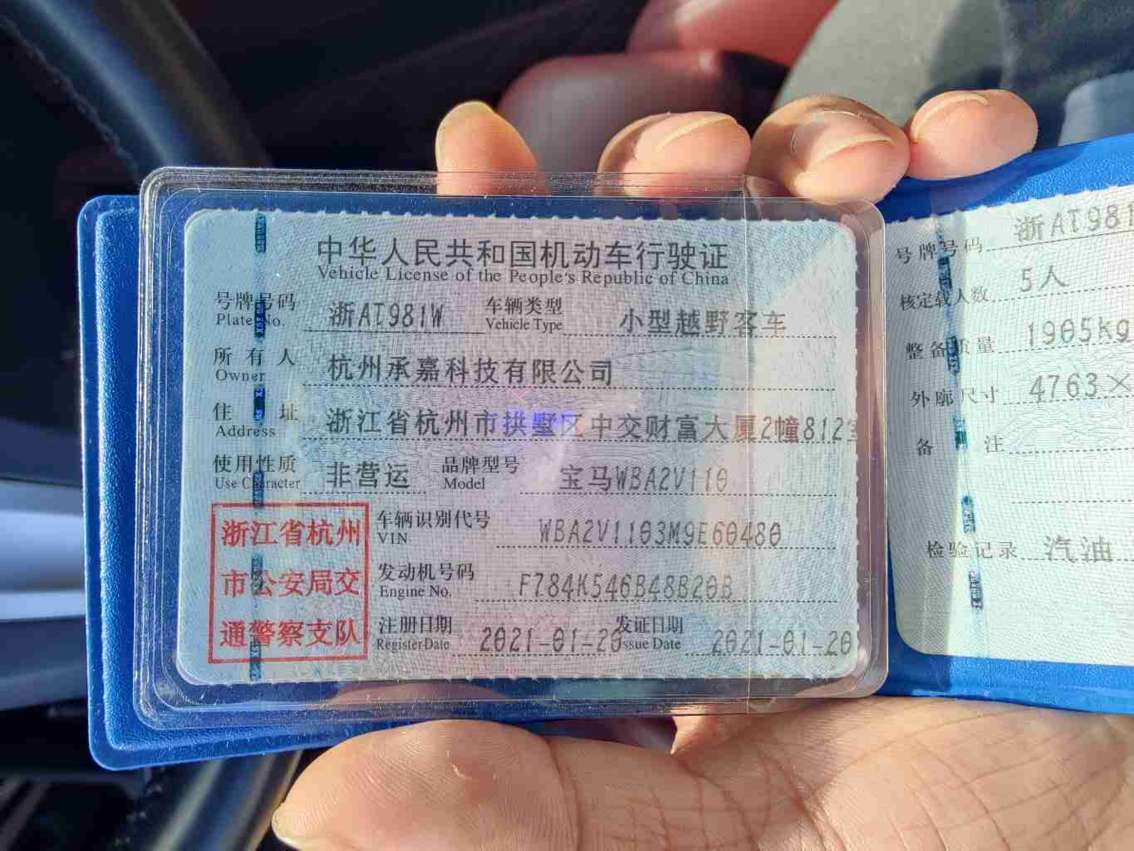 中华人民共和国机动车行驶证
Vehicle License of the People's Republic of China
号牌号码 浙AT981W 车辆类型 小型越野客车
Plate No. Vehicle Type
所有人 杭州承嘉科技有限公司
Owner
住址 浙江省杭州市拱墅区中交财富大厦2幢812室
Address
使用性质 非营运 品牌型号 宝马WBA2V110
Use Character Model
浙江省杭州
市公安局交
通警察支队
车辆识别代号 WBA2V1103M9E60480
VIN
发动机号码 F784K546B48B20B
Engine No.
注册日期 2021-01-20 发证日期 2021-01-20
Register Date Issue Date
号牌号码 浙AT981
核定载人数 5人
整备质量 1905kg
外廓尺寸 4763×
备注
检验记录 汽油